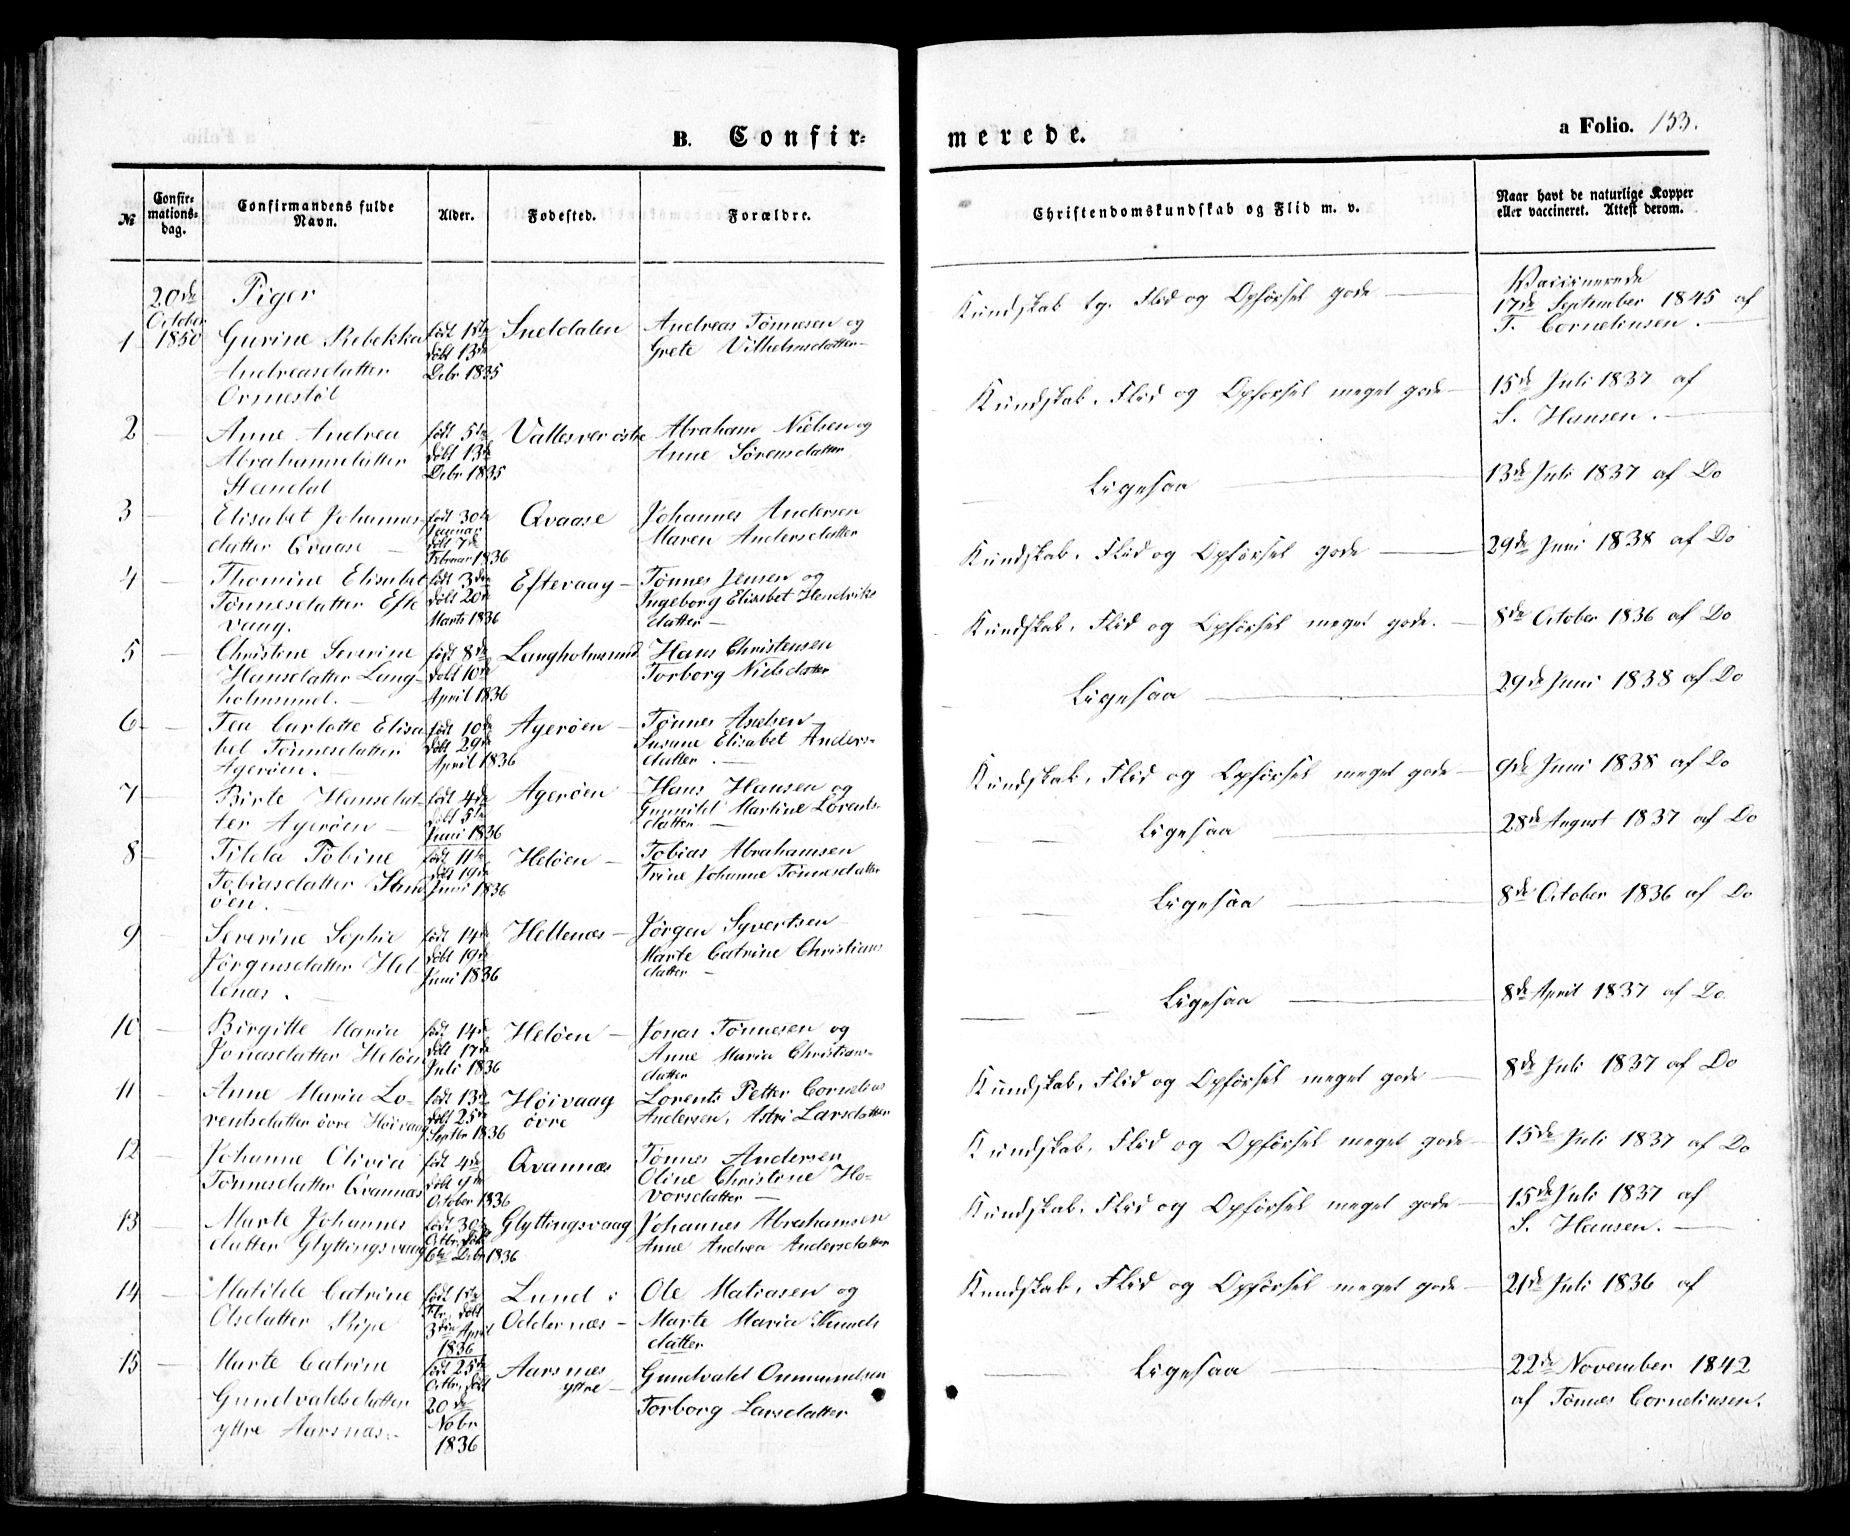 B. Confir-
merede.
a Folio. 153.
№
Confir-
mations-
dag.
Confirmandens fulde
Navn.
Alder.
Fødested.
Forældre.
Christendomskundskab og Flid m. v.
Naar havt de naturlige Kopper
eller vaccineret. Attest derom.
20de
October
1850
Piger
1
Gurine Rebekka
Andreasdatter
Ormestøl
født 1ste
døbt 13de
Debr 1835
Sneldalen
Andreas Tønnesen og
Grete Vilhelmsdatter
Kundskab tg. Flid og Opførsel gode
Vaccinerede
17de September 1845 af
T. Corneliusen.
2
Anne Andrea
Abrahamsdatter
Standal
født 5te
døbt 13de
Debr 1835
Vallesver østre
Abraham Nielsen og
Anne Sørensdatter
Kundskab, Flid og Opførsel meget gode
15de Juli 1837 af
S. Hansen.
3
Elisabet Johannes-
datter Qvaase
født 30te
Januar
døbt 7de
Februar 1836
Qvaase
Johannes Andersen
Maren Andersdatter
Ligesaa
13de Juli 1837 af Do
4
Thomine Elisabet
Tønnesdatter Efte
vaag.
født 3die
døbt 20de
Marts 1836
Eftevaag
Tønnes Jensen og
Ingeborg Elisabet Hendriks
datter
Kundskab, Flid og Opførsel gode
29de Juni 1838 af Do
5
Christine Severine
Hansdatter Lang-
holmsund.
født 8de
døbt 10de
April 1836
Langholmsund
Hans Christensen
Torborg Nielsdatter
Kundskab, Flid og Opførsel meget gode.
8de October 1836 af Do
6
Tea Carlotte Elisa
bet Tønnesdatter
Agerøen.
født 10de
døbt 29de
April 1836
Agerøen
Tønnes Axelsen
Susane Elisabet Anders-
datter.
Ligesaa
29de Juni 1838 af Do
7
Birte Hansdat-
ter Agerøen
født 4de
døbt 5te
Juni 1836
Agerøen
Hans Hansen og
Gunnild Martine Lorents-
datter
Kundskab, Flid og Opførsel meget gode
9de Juni 1838 af Do
8
Tilda Tobine
Tobiasdatter
øen.
født 11te
døbt 19de
Juni 1836
Heløen
Tobias Abrahamsen
Trine Johanne Tønnesdatter
Ligesaa
28de August 1837 af Do
9
Severine Sophie
Jørgensdatter Hel
lenæs.
født 14de
døbt 19de
Juni 1836
Hellenæs
Jørgen Syvertsen
Marte Catrine Christians
datter
Ligesaa
8de October 1836 af Do
10
Birgitte Maria
Jonasdatter Heløen
født 14de
døbt 17de
Juli 1836
Heløen
Jonas Tønnesen og
Anne Maria Christians-
datter
Ligesaa
8de April 1837 af Do.
11
Anne Maria Lo-
rentsdatter øvre Høivaag
født 13de
døbt 25de
Septbr 1836
Høivaag
øvre
Lorents Petter Cornelius
Andersen, Astri Larsdatter
Kundskab, Flid og Opførsel meget gode
8de Juli 1837 af Do
12
Johanne Olivia
Tønnesdatter Qvannæs
født 4de
døbt 9de
October 1836
Qvannæs
Tønnes Andersen
Oline Christine Ho-
vorsdatter
Kundskab, Flid og Opførsel meget gode
15de Juli 1837 af Do
13
Marte Johannes
datter Glyttingsvaag
født 30te
Octbr. døbt
6te Debr 1836
Glyttingsvaag
Johannes Abrahamsen
Anne Andrea Andersdatter
Kundskab, Flid og Opførsel meget gode
15de Juli 1837 af
S. Hansen.
14
Matilde Catrine
Olsdatter Ripe
født 1ste
Fbr. døbt
3die April
1836
Lund i
Oddernæs
Ole Matiasen og
Marte Maria Knuds
datter
Kundskab, Flid og Opførsel meget gode
21de Juli 1836 af
15
Marte Catrine
Gundvaldsdatter
yttre Aarsnæs.
født 25de
Octbr. døbt
20de
Nobr
1836
Aarsnæs
yttre
Gundvald Onmundsen
Torborg Larsdatter
Ligesaa
22de November 1842
af Tønnes Corneliusen.